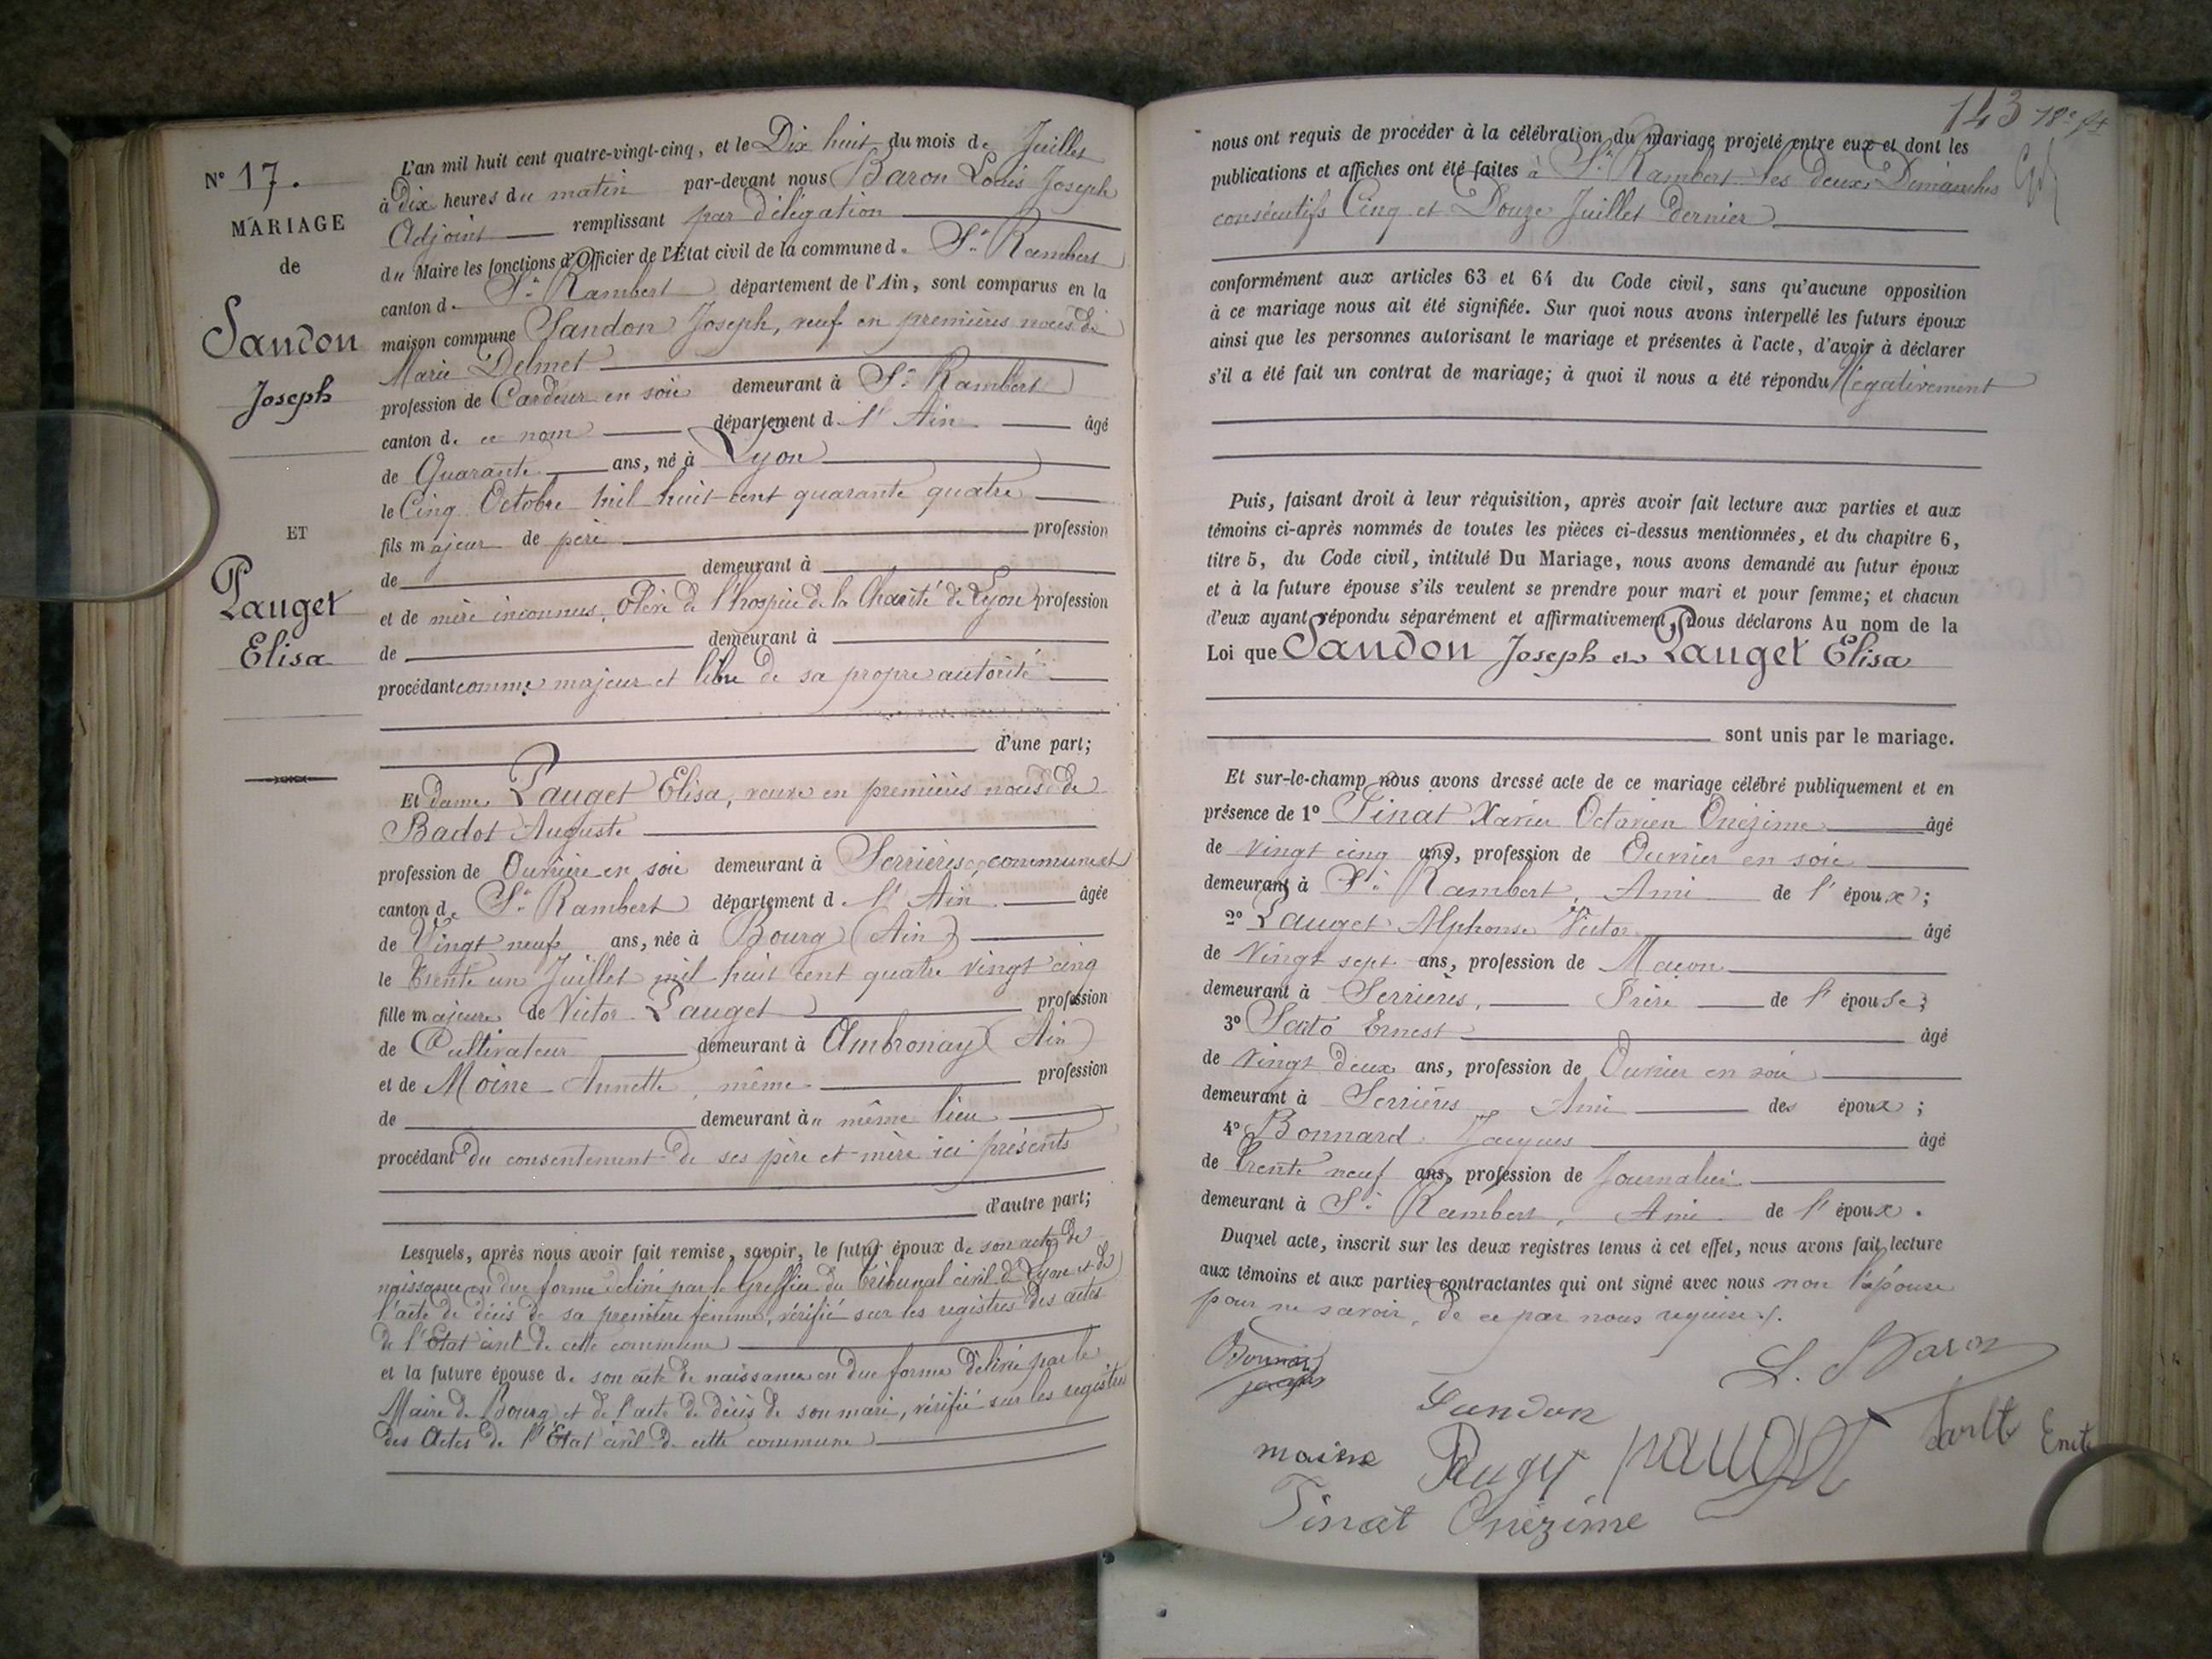 N° 17.
MARIAGE
de
Sandon
Joseph
ET
Pauget
Elisa
L'an mil huit cent quatre-vingt-cinq, et le Dix huit du mois de Juillet
à Dix heures du matin par-devant nous Baron Louis Joseph
Adjoint remplissant par délégation
du Maire les fonctions d'Officier de l'État civil de la commune de St Rambert
canton de St Rambert département de l'Ain, sont comparus en la
maison commune Sandon Joseph, veuf en premières noces de
Marie Delmet
profession de Cardeur en soie demeurant à St Rambert
canton de ce nom département de l'Ain âgé
de Quarante ans, né à Lyon
le Cinq Octobre mil huit cent quarante quatre
fils majeur de père profession
de demeurant à
et de mère inconnus, élève de l'hospice de la Charité de Lyon profession
de demeurant à
procédant comme majeur et libre de sa propre autorité
d'une part;
Et dame Pauget Elisa, veuve en premières noces de
Badot Auguste
profession de Ouvrière en soie demeurant à Serrières, commune et
canton de St Rambert département de l'Ain âgée
de Vingt neuf ans, née à Bourg (Ain)
le trente un Juillet mil huit cent quatre vingt cinq
fille majeure de Victor Pauget profession
de Cultivateur demeurant à Ambronay (Ain)
et de Moine Annette, même profession
de demeurant à même lieu
procédant du consentement de ses père et mère ici présents
d'autre part;
Lesquels, après nous avoir fait remise, savoir, le futur époux de son acte de
naissance en due forme délivré par le Greffier du tribunal civil de Lyon et de
l'acte de décès de sa première femme, vérifié sur les registres des actes
de l'Etat civil de cette commune
et la future épouse de son acte de naissance en due forme délivré par le
Maire de Bourg et de l'acte de décès de son mari, vérifié sur les registres
des Actes de l'Etat civil de cette commune
143 18e
nous ont requis de procéder à la célébration du mariage projeté entre eux et dont les
publications et affiches ont été faites à St Rambert les deux Dimanches
consécutifs Cinq et Douze Juillet dernier
conformément aux articles 63 et 64 du Code civil, sans qu'aucune opposition
à ce mariage nous ait été signifiée. Sur quoi nous avons interpellé les futurs époux
ainsi que les personnes autorisant le mariage et présentes à l'acte, d'avoir à déclarer
s'il a été fait un contrat de mariage; à quoi il nous a été répondu Négativement
Puis, faisant droit à leur réquisition, après avoir fait lecture aux parties et aux
témoins ci-après nommés de toutes les pièces ci-dessus mentionnées, et du chapitre 6,
titre 5, du Code civil, intitulé Du Mariage, nous avons demandé au futur époux
et à la future épouse s'ils veulent se prendre pour mari et pour femme; et chacun
d'eux ayant répondu séparément et affirmativement, Nous déclarons Au nom de la
Loi que Sandon Joseph et Pauget Elisa
sont unis par le mariage.
Et sur-le-champ nous avons dressé acte de ce mariage célébré publiquement et en
présence de 1° Tinat Xavier Octavien Onézime âgé
de vingt cinq ans, profession de Ouvrier en soie
demeurant à St Rambert, Ami de l'époux;
2° Pauget Alphonse Victor âgé
de Vingt sept ans, profession de Maçon
demeurant à Serrières, Frère de l'épouse;
3° Ernest âgé
de Vingt deux ans, profession de Ouvrier en soie
demeurant à Serrières Ami des époux;
4° Bonnard Jacques âgé
de trente neuf ans, profession de Journalier
demeurant à St Rambert, Ami de l'époux.
Duquel acte, inscrit sur les deux registres tenus à cet effet, nous avons fait lecture
aux témoins et aux parties contractantes qui ont signé avec nous non l'épouse
pour ne savoir, de ce par nous requise ./.
L. Baron
Sandon
moine pauget
Tinat Onézime